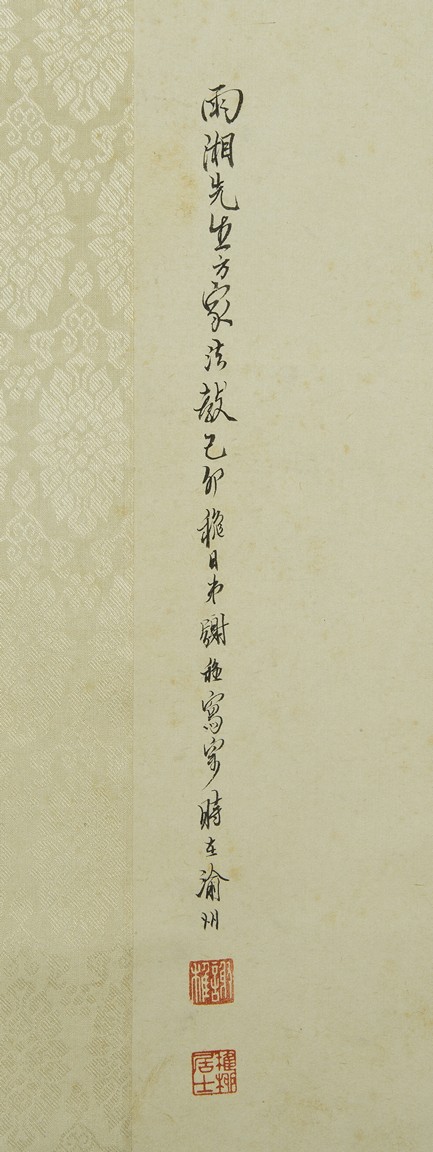 雨湘先生方家法教己卯穐日弟謝稚寫寄時在渝州
謝稚
稚柳居士